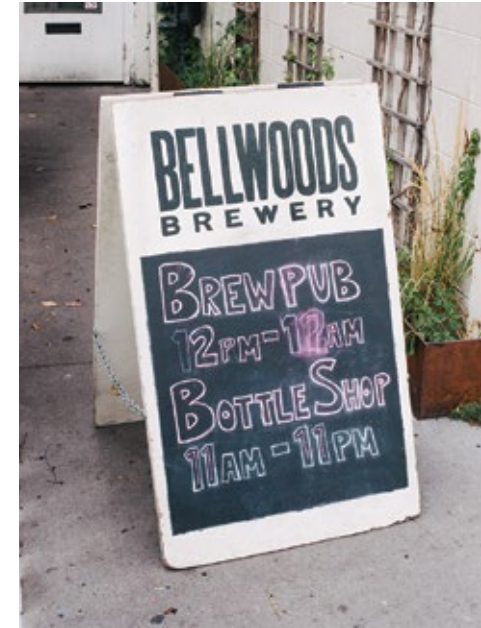 BELLWOODS
BREWERY
BREWPUB
12PM-12AM
BOTTLE SHOP
11AM-11PM